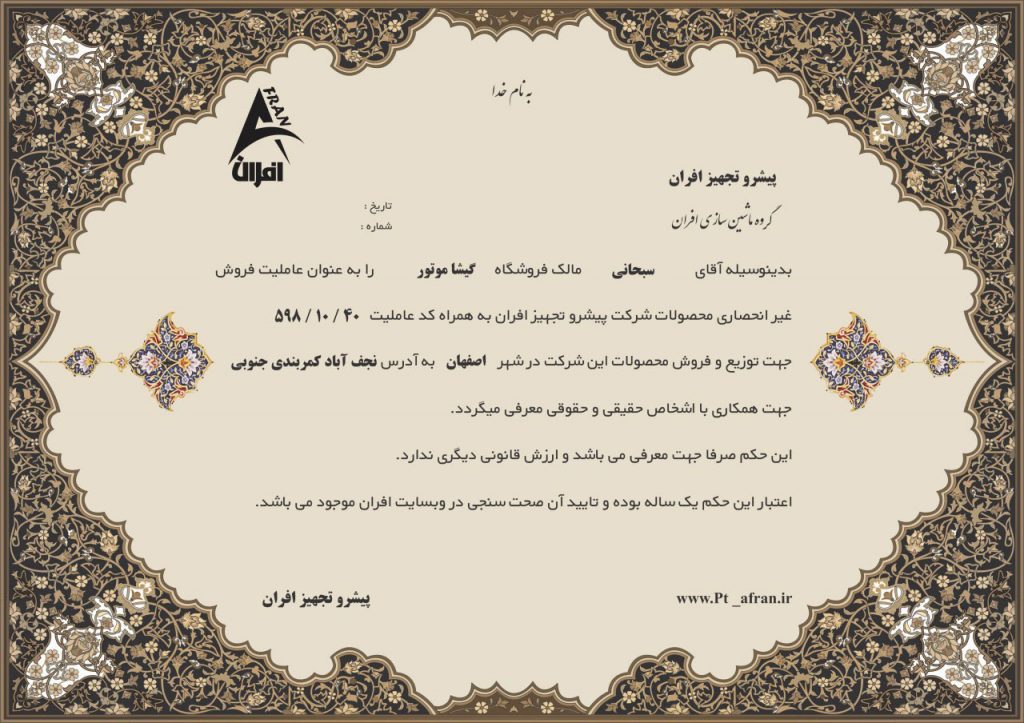 به نام خدا
AFRAN
افران
پیشرو تجهیز افران
گروه ماشین سازی افران
تاریخ :
شماره :
بدینوسیله آقای سبحانی مالک فروشگاه گیشا موتور را به عنوان عاملیت فروش
غیر انحصاری محصولات شرکت پیشرو تجهیز افران به همراه کد عاملیت ۴۰ / ۱۰ / ۵۹۸
جهت توزیع و فروش محصولات این شرکت در شهر اصفهان به آدرس نجف آباد کمربندی جنوبی
جهت همکاری با اشخاص حقیقی و حقوقی معرفی میگردد.
این حکم صرفا جهت معرفی می باشد و ارزش قانونی دیگری ندارد.
اعتبار این حکم یک ساله بوده و تایید آن صحت سنجی در وبسایت افران موجود می باشد.
www.Pt _afran.ir
پیشرو تجهیز افران